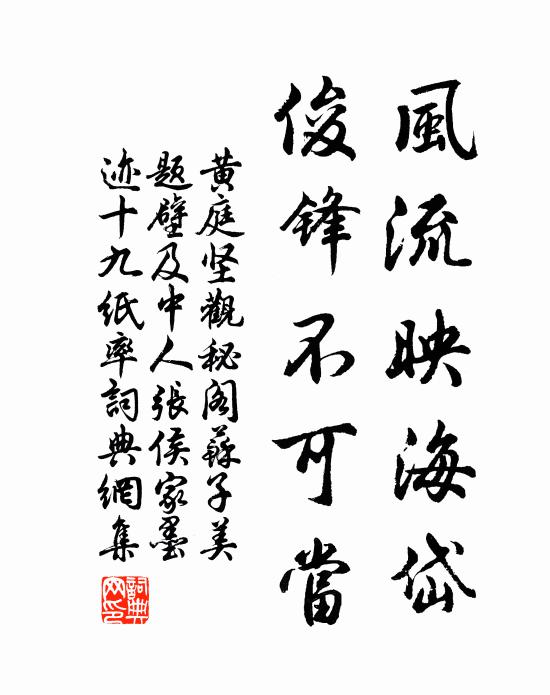 風流映海岱
俊鋒不可當
黄庭坚觀秘阁蘇子美
题壁及中人張侯家墨
迹十九紙率詞典網集